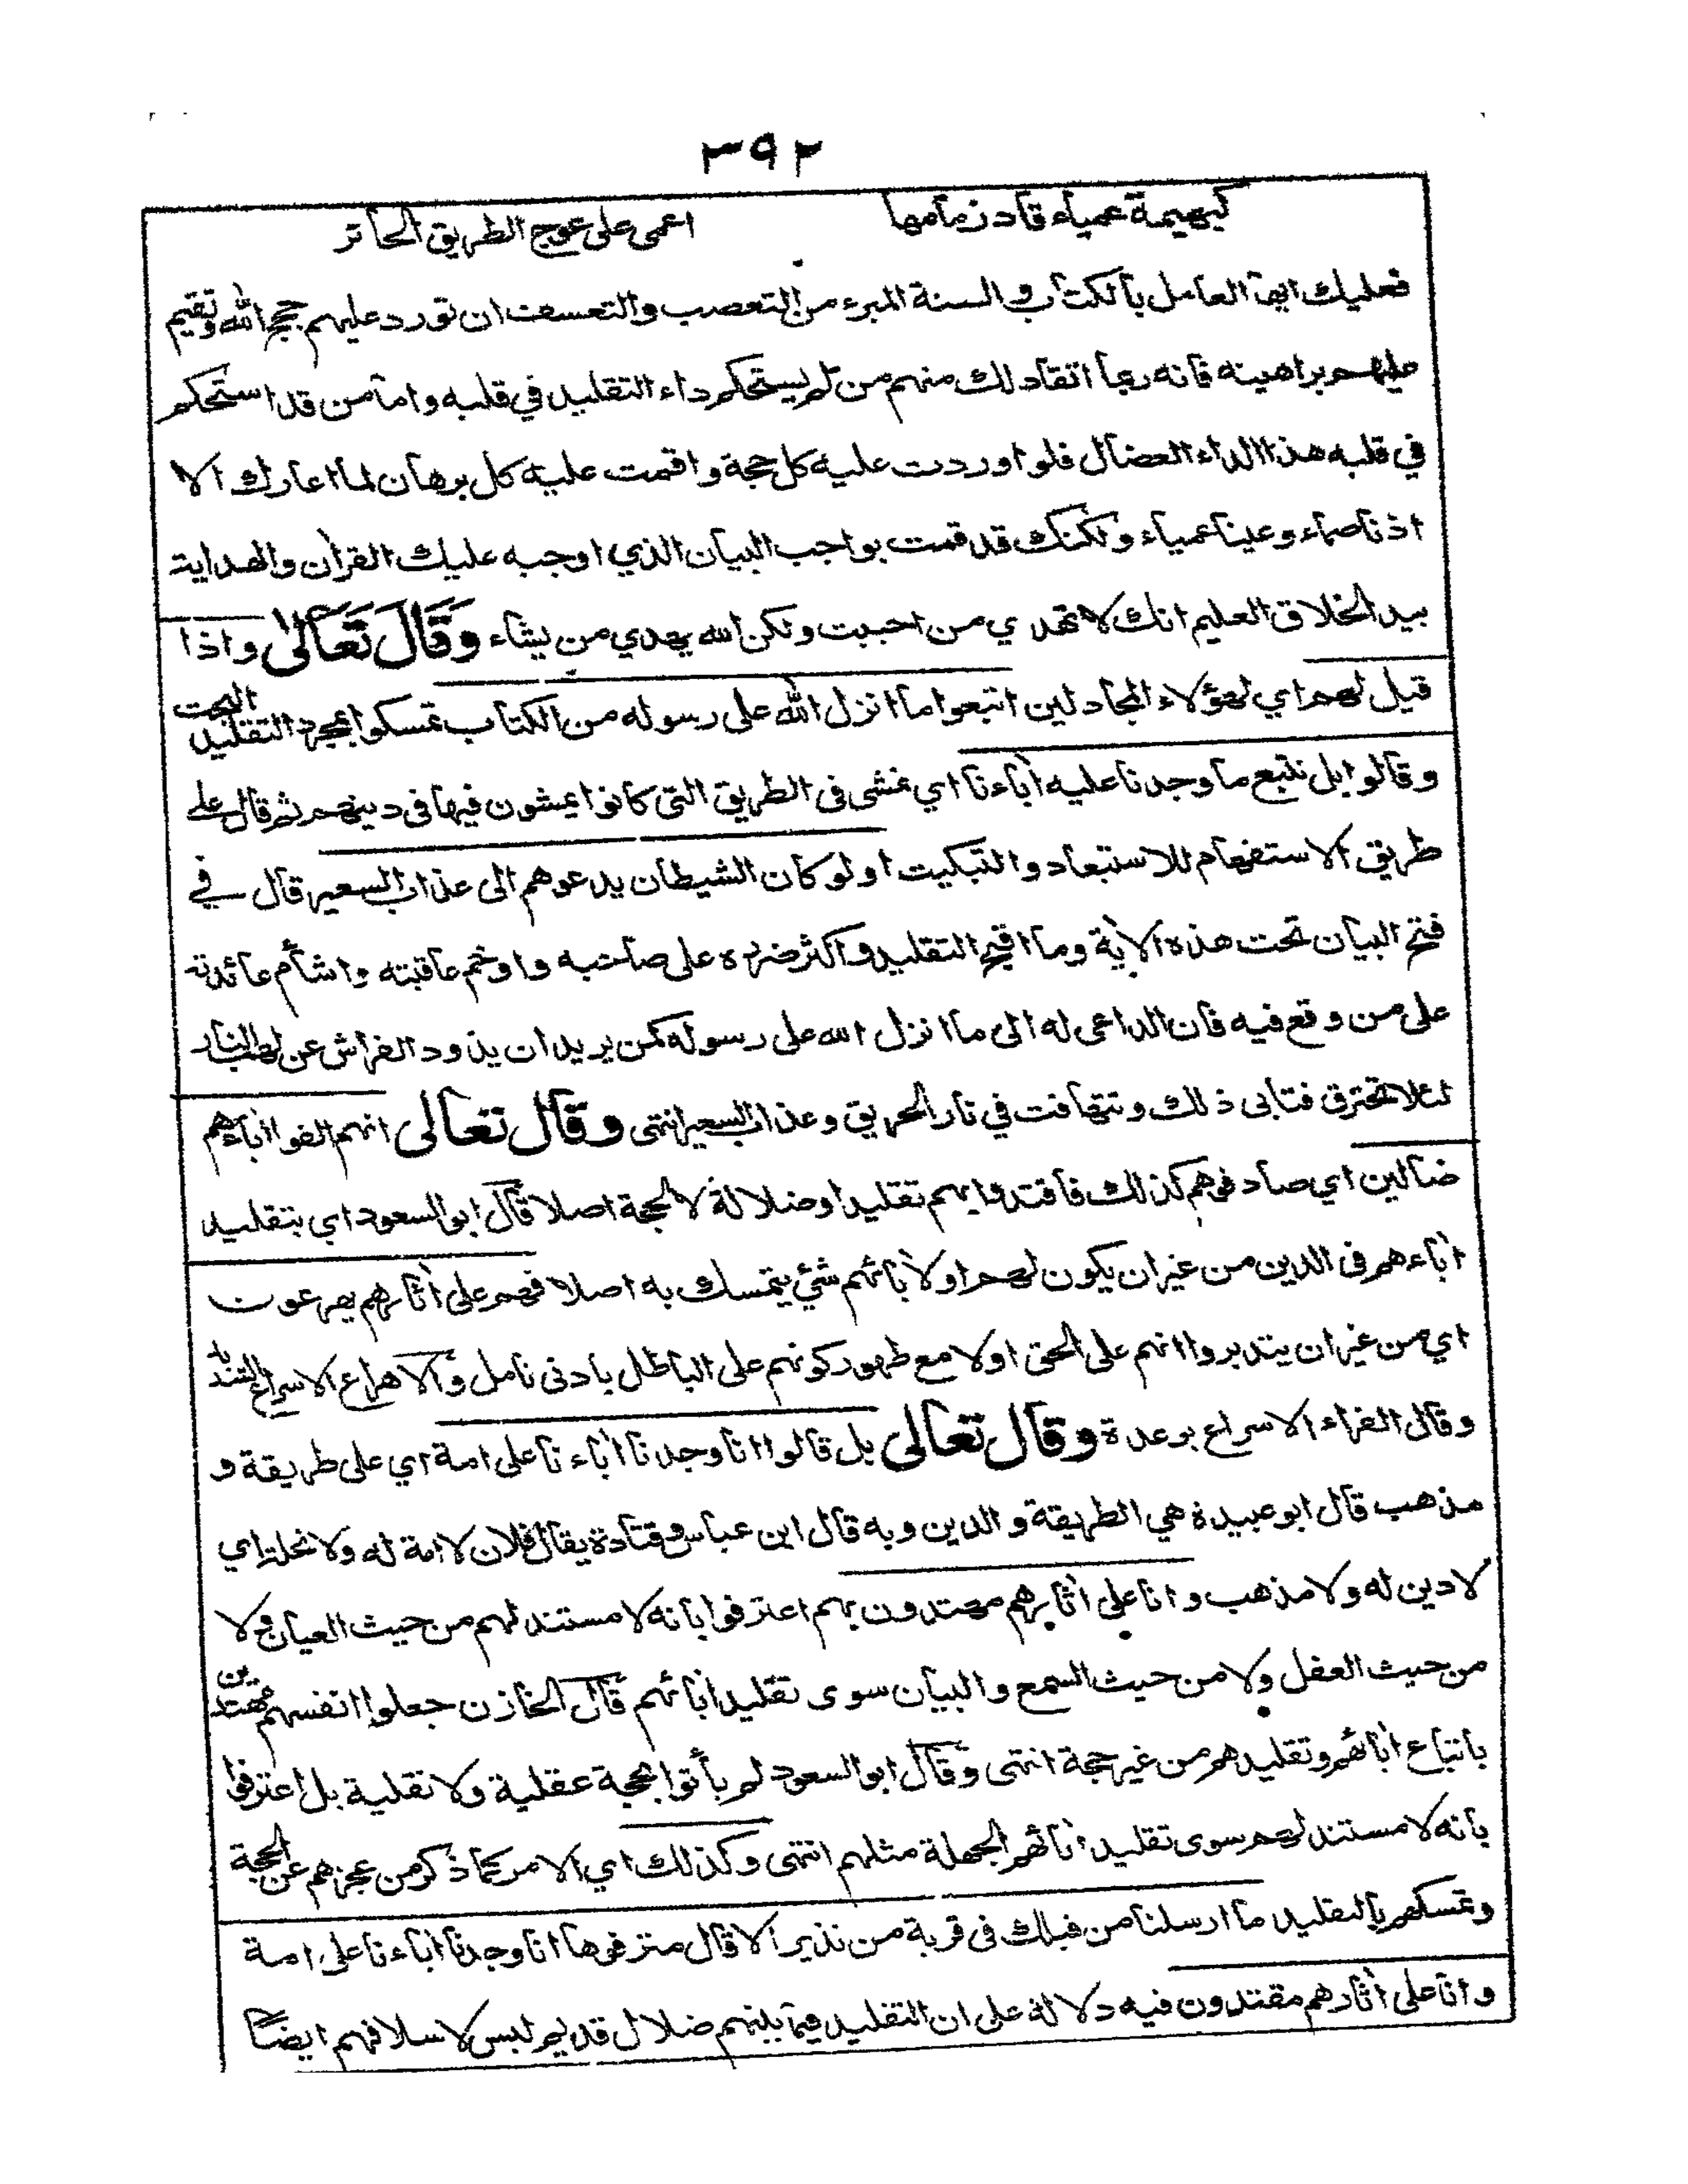 ٣٩٢
كبهيمة عمياء قاد زمامها اعمى على عوج الطريق الحائر
فعليك ايها العامل بالكتاب والسنة المبرء من التعصب والتعسف ان تورد عليهم حجج الله وتقيم
عليهم براهينه فانه ربما انقاد لك منهم من لم يستحكم داء التقليد في قلبه واما من قد استحكم
في قلبه هذا الداء العضال فلو اوردت عليه كل حجة واقمت عليه كل برهان لما اعارك الا
اذنا صماء وعينا عمياء ولكنك قد قمت بواجب البيان الذي اوجبه عليك القرآن والهداية
بيد الخلاق العليم انك لا تهدي من احببت ولكن الله يهدي من يشاء وَقَالَ تَعَالٰى واذا
قيل لهم اي لهؤلاء المجادلين اتبعوا ما انزل الله على رسوله من الكتاب تمسكوا بمجرد التقليد البحت
وقالوا بل نتبع ما وجدنا عليه آباءنا اي نمشى فى الطريق التى كانوا يمشون فيها فى دينهم ثم قال على
طريق الاستفهام للاستبعاد والتبكيت اولو كان الشيطان يدعوهم الى عذاب السعير قال في
فتح البيان تحت هذه الآية وما اقبح التقليد واكثر ضرره على صاحبه واوخم عاقبته واشأم عائدته
على من وقع فيه فان الداعى له الى ما انزل الله على رسوله كمن يريد ان يذود الفراش عن لهب النار
لئلا تحترق فتابى ذلك وتتهافت في نار الحريق وعذاب السعير انتهى وقال تعالى انهم الفوا آباءهم
ضالين اي صادفوهم كذلك فاقتدوا بهم تقليدا وضلالة لا لحجة اصلا قال ابو السعود اي بتقليد
آباءهم فى الدين من غير ان يكون لهم او لآبائهم شئ يتمسك به اصلا فهم على آثارهم يهرعون
اي من غير ان يتدبروا انهم على الحق اولا مع ظهور كونهم على الباطل بادنى تامل والاهراع الاسراع الشديد
وقال الفراء الاسراع برعدة وقال تعالى بل قالوا انا وجدنا آباءنا على امة اي على طريقة و
مذهب قال ابو عبيدة هي الطريقة والدين وبه قال ابن عباس وقتادة يقال فلان لا امة له ولا نحلة اي
لا دين له ولا مذهب وانا على آثارهم مهتدون بهم اعترفوا بانه لا مستند لهم من حيث العيان ولا
من حيث العقل ولا من حيث السمع والبيان سوى تقليد آبائهم قال الخازن جعلوا انفسهم مهتدين
باتباع آبائهم وتقليدهم من غير حجة انتهى وقال ابو السعود لم يأتوا بحجة عقلية ولا نقلية بل اعترفوا
بانه لا مستند لهم سوى تقليد آبائهم الجهلة مثلهم انتهى وكذلك اي الامر كما ذكر من عجزهم عن الحجة
وتمسكهم بالتقليد ما ارسلنا من قبلك فى قرية من نذير الا قال مترفوها انا وجدنا آباءنا على امة
وانا على آثارهم مقتدون فيه دلالة على ان التقليد فيما بينهم ضلال قديم ليس لاسلافهم ايضاً